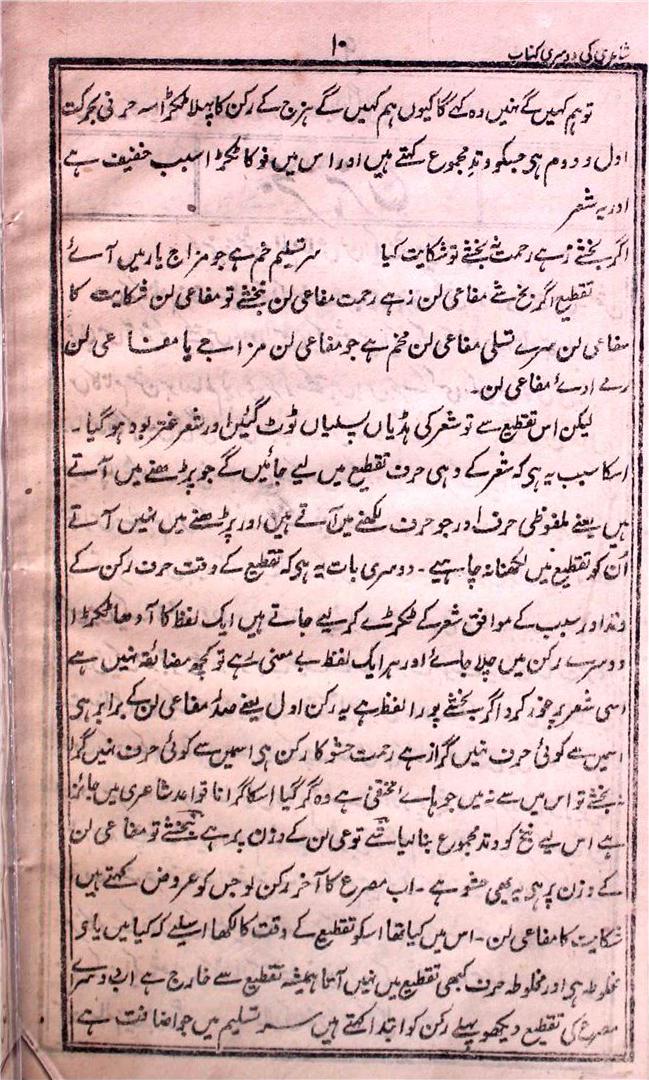 شاعری کی دوسری کتاب
۱۰
تو ہم کہیں گے نہیں وہ کہے گا کیوں ہم کہیں گے ہزج کے رکن کا پہلا ٹکڑا سہ حرفی بحرکت
اول و دوم ہی جسکو وتد مجموع کہتے ہیں اور اس میں فو کا ٹکڑا سبب خفیف ہے
اور یہ شعر
اگر بخشے زہے رحمت نہ بخشے تو شکایت کیا سر تسلیم خم ہے جو مزاج یار میں آئے
تقطیع اگر بخشے مفاعی لن زہے رحمت مفاعی لن نبخشے تو مفاعی لن شکایت کا
مفاعی لن سرے تسلی مفاعی لن مخم ہے جو مفاعی لن مزاجے یا مفاعی لن
رے اوے مفاعی لن۔
لیکن اس تقطیع سے تو شعر کی ہڈیاں پسلیاں ٹوٹ گئیں اور شعر غتر بود ہو گیا۔
اسکا سبب یہ ہی کہ شعر کے وہی حرف تقطیع میں لیے جائیں گے جو پڑھنے میں آتے
ہیں یعنے ملفوظی حرف اور جو حرف لکھنے میں آتے ہین اور پڑھنے میں نہیں آتے
اُن کو تقطیع میں لکھنا نہ چاہیے۔ دوسری بات یہ ہی کہ تقطیع کے وقت حرف رکن کے
وتد اور سبب کے موافق شعر کے ٹکڑے کر لیے جاتے ہیں ایک لفظ کا آدھا ٹکڑا
دوسرے رکن میں چلا جائے اور ہر ایک لفظ بے معنی رہے تو کچھ مضائقہ نہیں ہے
اسی شعر پر غور کرو اگر بخشے پورا لفظ ہے یہ رکن اول یعنے صدر مفاعی لن کے برابر ہی
اسمیں سے کوئی حرف نہیں گرا زہے رحمت حشو کا رکن ہی اسمیں سے کوئی حرف نہیں گرا
نہ بخشے تو اس میں سے نہ میں جو ہاے مختفی ہے وہ گر گیا اسکا گرانا قواعد شاعری میں جائز
ہے اس لیے نبخ کو وتد مجموع بنا لیا شے تو عی لن کے وزن پر ہے نبخشے تو مفاعی لن
کے وزن پر ہی یہ بھی حشو ہے۔ اب مصرع کا آخر رکن لو جس کو عروض کہتے ہیں
شکایت کا مفاعی لن۔ اس میں کیا تھا اسکو تقطیع کے وقت کا لکھا اسلیے کہ کیا میں یاے
مخلوطہ ہی اور مخلوطہ حرف کبھی تقطیع میں نہیں آتا ہمیشہ تقطیع سے خارج ہے اب دوسرے
مصرع کی تقطیع دیکھو پہلے رکن کو ابتدا کہتے ہیں سر تسلیم میں جو اضافت ہے